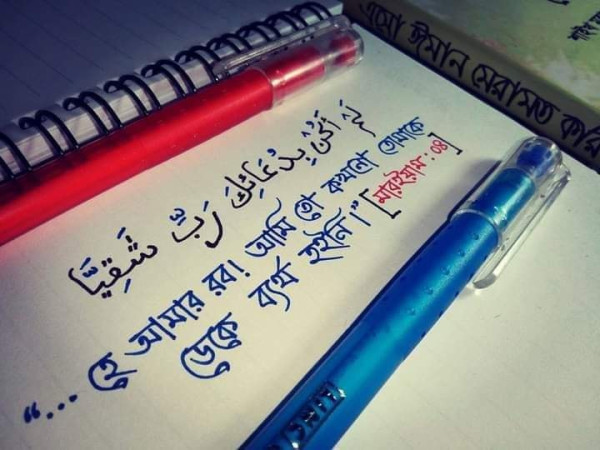 এসো ঈমান মেরামত করি
لَمْ أَكُنْ بِدُعَائِكَ رَبِّ شَقِيًّا
“... হে আমার রব! আমি তো কখনো তোমাকে
ডেকে ব্যর্থ হইনি।” [মারইয়াম : ০৪]
LINC